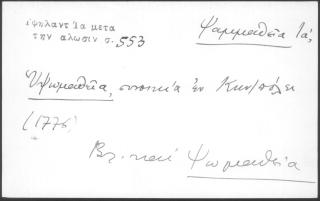 Ὑψηλάντ Ἰα μετα
την αλωσιν σ. 553
Ψαμμαθεία Ἰά,
Ὑψωμαθεῖα, συνοικία ἐν Κων/πόλει
(1776)
Βλ. καὶ Ψωμαθεῖα